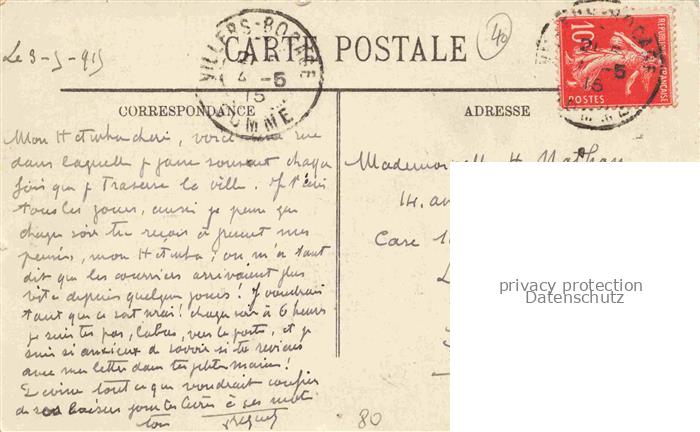 Le 3-5-915
CARTE POSTALE
40
VILLERS-BOCAGE
4 -5
15
SOMME
10c
POSTES
CORRESPONDANCE
ADRESSE
Mon H chéri, voici une rue
dans laquelle je passe souvent chaque
fois que je traverse la ville. Je t'écris
tous les jours, aussi je pense que
chaque soir tu reçois à présent mes
pensées, mon H ; on m'a tant
dit que les courriers arrivaient plus
vite depuis quelques jours! Je voudrais
tant que ce soit vrai! Chaque soir à 6 heures
je suis tes pas, là bas, vers la poste, et je
suis si anxieux de savoir si tu reviens
avec ma lettre dans tes petites mains!
tout ce que voudrait confier
baisers pour tes lèvres à ses mots
ton
Mademoiselle H. Nathan
14. av
Case 1
80
privacy protection
Datenschutz